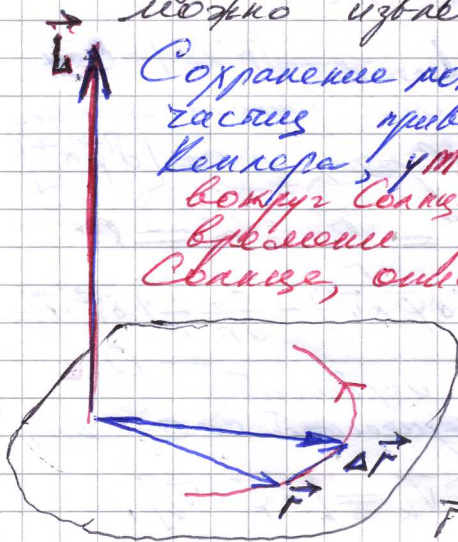 можно извле
L
Сохранение мо
частиц прив
Кеплера, ут
вокруг Солнц
времени
Солнце, опи
Δr
r
r